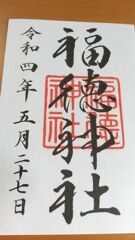 福徳神社
福徳神社
令和四年五月二十七日